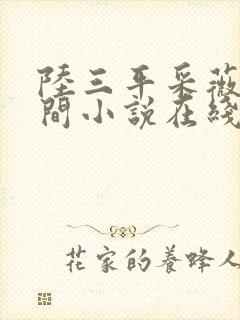 陸三平采薇
間小說在綫
花家的養蜂人